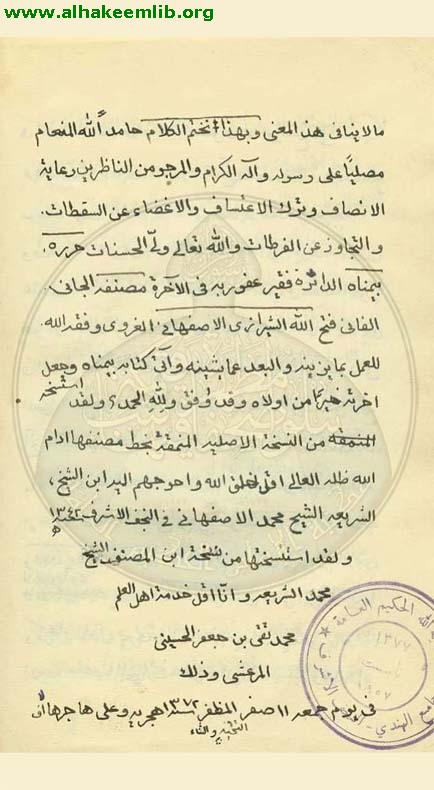 www.alhakeemlib.org
ما لا ينافى هذ المعنى وبهذا نختم الكلام حامداً الله المنعام
مصلياً على رسوله وآله الكرام والمرجو من الناظرين رعاية
الانصاف وترك الاعتساف والاغضاء عن السقطات
والتجاوز عن الفرطات والله تعالى ولىّ الحسنات حرره
بيمناه الداثرة فقير عفو ربه فى الآخرة مصنفه الجانى
الفانى فتح الله الشيرازى الاصفهانى الغروى وفقه الله
للعمل بما يزينه والبعد عما يشينه وآتى كتابه بيمناه وجعل
اخرته خيراً من اولاه وقد وُفق ولله الحمد ولقد استنسخه
من النسخة الاصليه المنمقة بخط مصنفها ادام
الله ظله العالى اقل خلق الله واحوجهم اليه ابن الشيخ
الشريعه الشيخ محمد الاصفهانى فى النجف الاشرف سنة ١٣٤٢
ه
ولقد استنسختها من نسخة ابن المصنف الشيخ
محمد الشريعه وانا اقل خدمة اهل العلم
محمد تقى بن جعفر الحسينى
المرعشى وذلك
فى يوم جمعه ١١ صفر المظفر سنة ١٣٧٢ هجريه وعلى هاجرها
التحيه والثناء
الحكيم العامة
١٣٧٧
١٩٥٧
الهندي